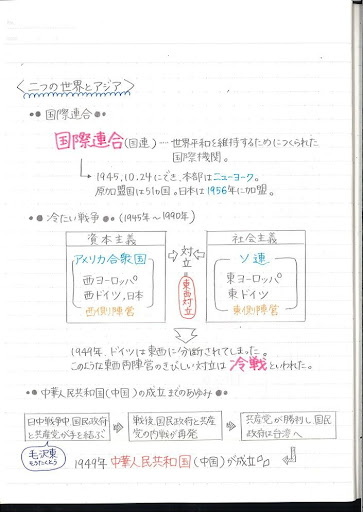 〈二つの世界とアジア〉
・●国際連合●・
国際連合(国連)…世界平和を維持するためにつくられた
国際機関。
→1945.10.24にでき、本部はニューヨーク。
原加盟国は51か国。日本は1956年に加盟。
・●冷たい戦争●・(1945年～1990年)
資本主義
アメリカ合衆国
西ヨーロッパ
西ドイツ,日本
西側陣営
⇔対立。
東西対立
社会主義
ソ連
東ヨーロッパ
東ドイツ
東側陣営
1949年、ドイツは東西に分断されてしまった。
このような東西両陣営のきびしい対立は冷戦といわれた。
・●中華人民共和国(中国)の成立までのあゆみ●・
日中戦争中,国民政府
と共産党が手を結ぶ
⇒
戦後,国民政府と共産
党の内戦が再発
⇒
共産党が勝利し,国民
政府は台湾へ
毛沢東
もうたくとう
1949年 中華人民共和国(中国)が成立